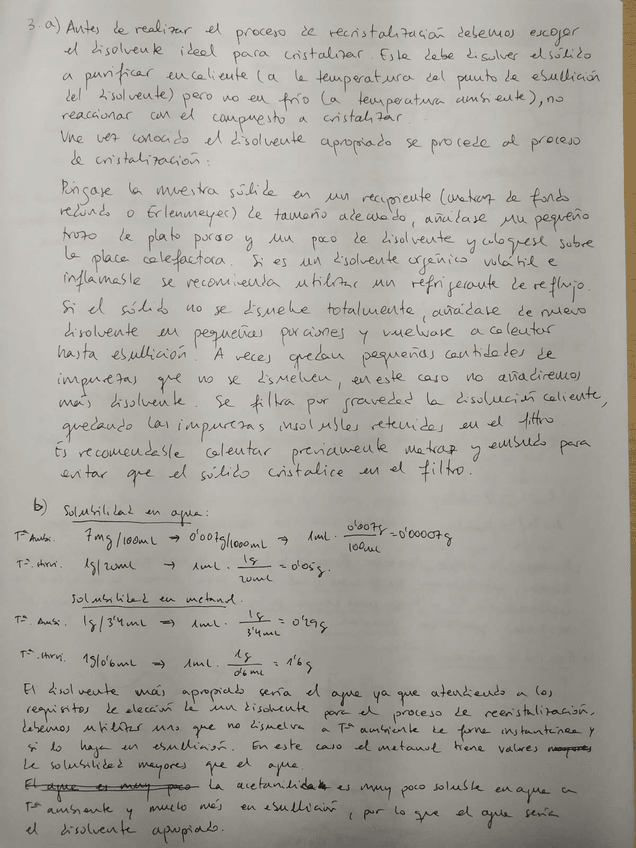 3. a) Antes de realizar el proceso de recristalización debemos escoger
el disolvente ideal para cristalizar. Este debe disolver el sólido
a purificar en caliente (a la temperatura del punto de ebullición
del disolvente) pero no en frío (a temperatura ambiente), no
reaccionar con el compuesto a cristalizar.
Una vez conocido el disolvente apropiado se procede al proceso
de cristalización:
Póngase la muestra sólida en un recipiente (matraz de fondo
redondo o Erlenmeyer) de tamaño adecuado, añádase un pequeño
trozo de plato poroso y un poco de disolvente y colóquese sobre
la placa calefactora. Si es un disolvente orgánico volátil e
inflamable se recomienda utilizar un refrigerante de reflujo.
Si el sólido no se disuelve totalmente, añádase de nuevo
disolvente en pequeñas porciones y vuélvase a calentar
hasta ebullición. A veces quedan pequeñas cantidades de
impurezas que no se disuelven, en este caso no añadiremos
más disolvente. Se filtra por gravedad la disolución caliente,
quedando las impurezas insolubles retenidas en el filtro
Es recomendable calentar previamente matraz y embudo para
evitar que el sólido cristalice en el filtro.
b) Solubilidad en agua:
Tª Ambi. 7mg/100mL → 0'007g/100mL → 1mL · 0'007g/100mL = 0'00007g
Tª Hirvi. 1g/20mL → 1mL · 1g/20mL = 0'05g.
Solubilidad en metanol.
Tª Ambi. 1g/3'4mL → 1mL · 1g/3'4mL = 0'29g
Tª Hirvi. 1g/0'6mL → 1mL · 1g/0'6mL = 1'6g
El disolvente más apropiado sería el agua ya que atendiendo a los
requisitos de elección de un disolvente para el proceso de recristalización,
debemos utilizar uno que no disuelva a Tª ambiente de forma instantánea y
si lo haga en ebullición. En este caso el metanol tiene valores mayores
de solubilidad mayores que el agua.
El agua es muy poco la acetanilida es muy poco soluble en agua a
Tª ambiente y mucho más en ebullición, por lo que el agua sería
el disolvente apropiado.